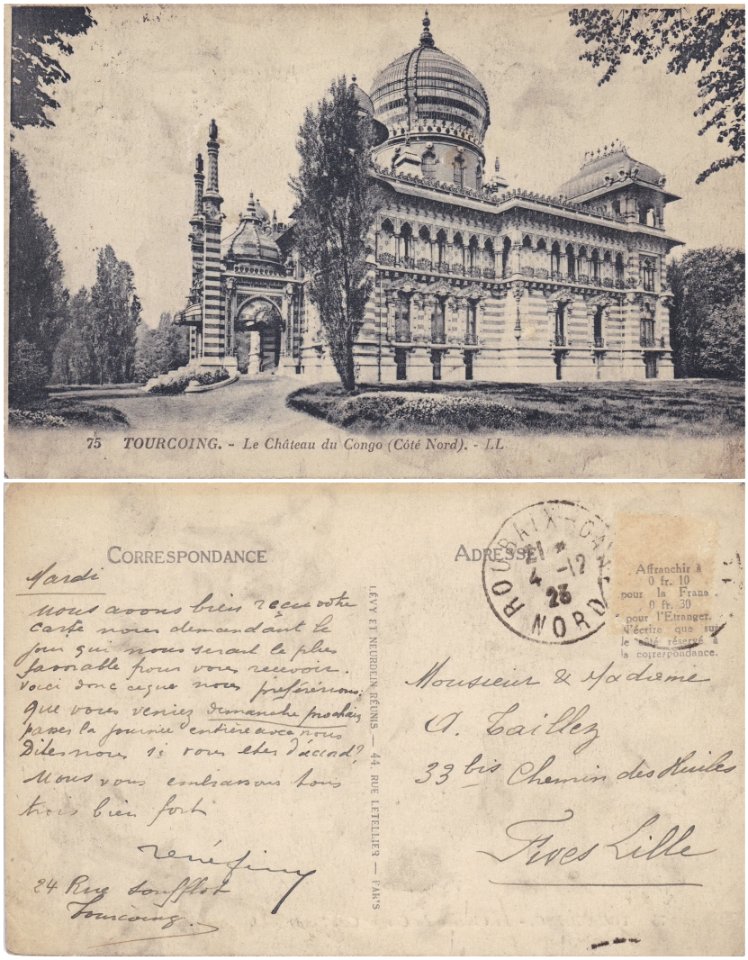 75 TOURCOING. - Le Château du Congo (Côté Nord). - LL
CORRESPONDANCE
Mardi
Nous avons bien reçu votre
carte nous demandant le
jour qui nous serait le plus
favorable pour vous recevoir.
Voici donc ce que nous préférerions:
que vous veniez dimanche prochain
passer la journée entière avec nous
Dites nous si vous êtes d'accord?
Nous vous embrassons tous
trois bien fort
24 Rue Soufflot
Tourcoing
LÉVY ET NEURDEIN RÉUNIS — 44, RUE LETELLIER — PARIS
ADRESSE
ROUBAIX GARE
4 -12
23
NORD
Affranchir à
0 fr. 10
pour la France
0 fr. 30
pour l'Etranger.
N'écrire que sur
le côté réservé à
la correspondance.
Monsieur & Madame
A. Taillez
33 bis Chemin des Huiles
Fives Lille